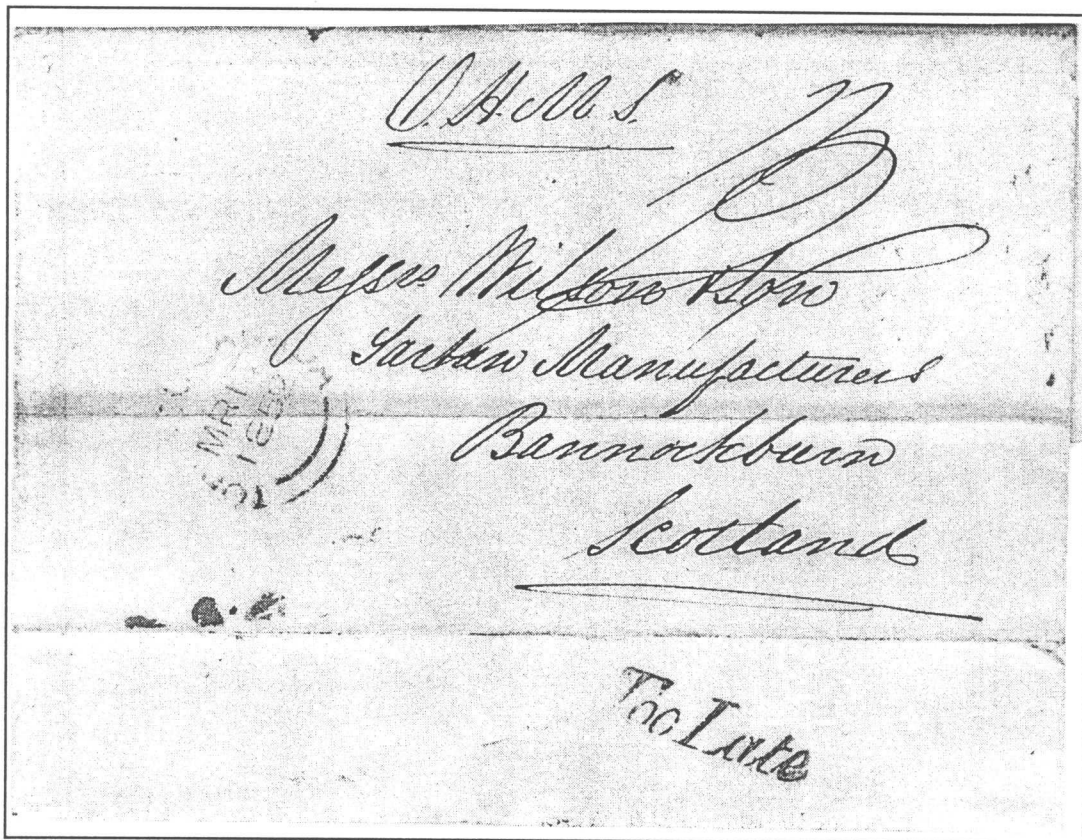 O.H.M.S.
Messrs. Wilson & Son
Tartan Manufacturers
Bannockburn
Scotland
MR
Too Late